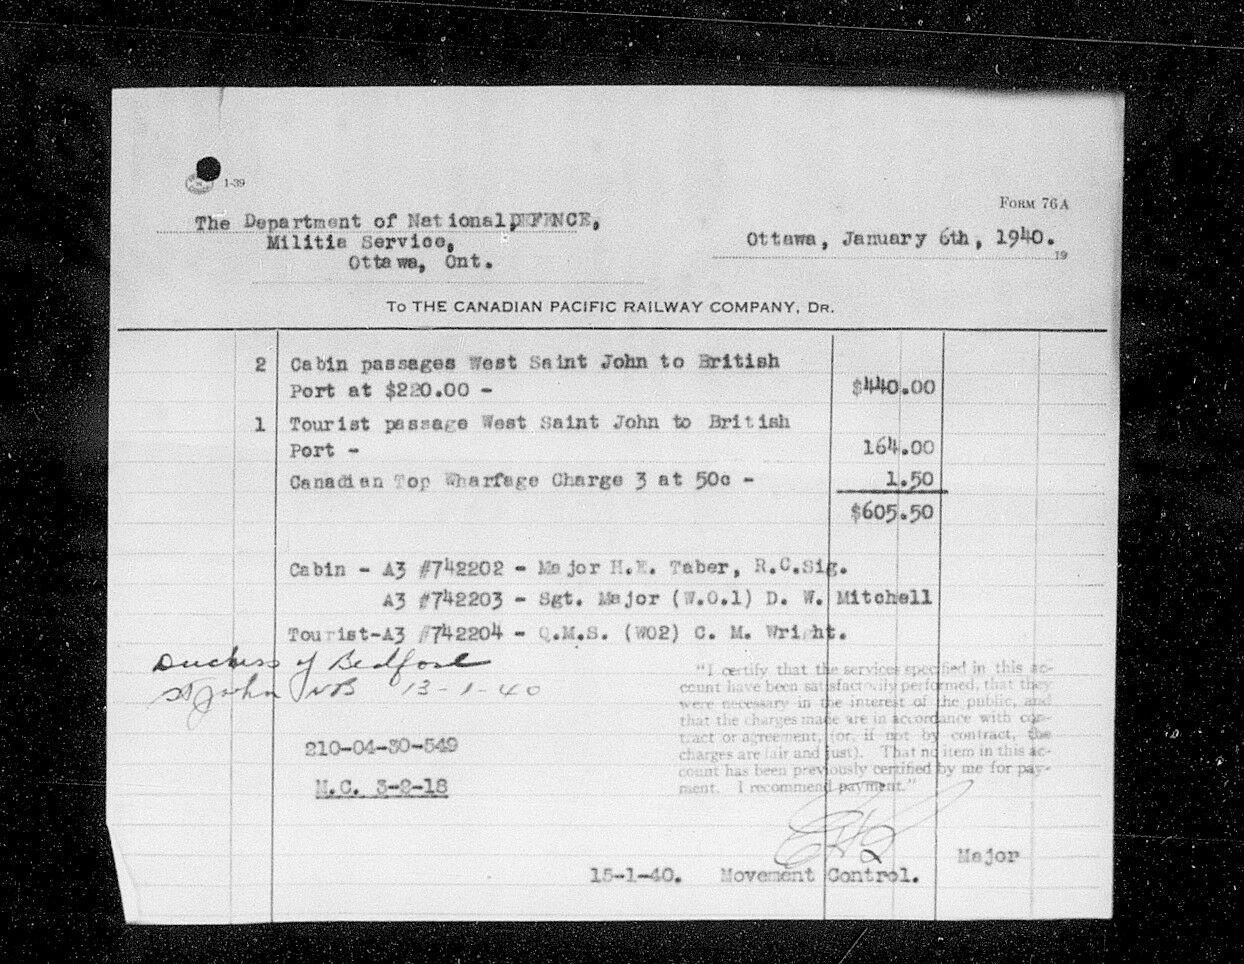 1-39
FORM 76A
The Department of National DEFENCE,
Militia Service,
Ottawa, Ont.
Ottawa, January 6th, 1940.
19
To THE CANADIAN PACIFIC RAILWAY COMPANY, DR.
2 Cabin passages West Saint John to British
Port at $220.00 - $440.00
1 Tourist passage West Saint John to British
Port - 164.00
Canadian Top Wharfage Charge 3 at 50c - 1.50
$605.50
Cabin - A3 #742202 - Major H.E. Taber, R.C.Sig.
A3 #742203 - Sgt. Major (W.O.1) D. W. Mitchell
Tourist-A3 #742204 - Q.M.S. (WO2) C. M. Wright.
Duchess of Bedford
St John NB 13-1-40
"I certify that the services specified in this ac-
count have been satisfactorily performed, that they
were necessary in the interest of the public, and
that the charges made are in accordance with con-
tract or agreement, (or, if not by contract, the
charges are fair and just). That no item in this ac-
count has been previously certified by me for pay-
ment. I recommend payment."
210-04-30-549
M.C. 3-2-18
Major
15-1-40. Movement Control.